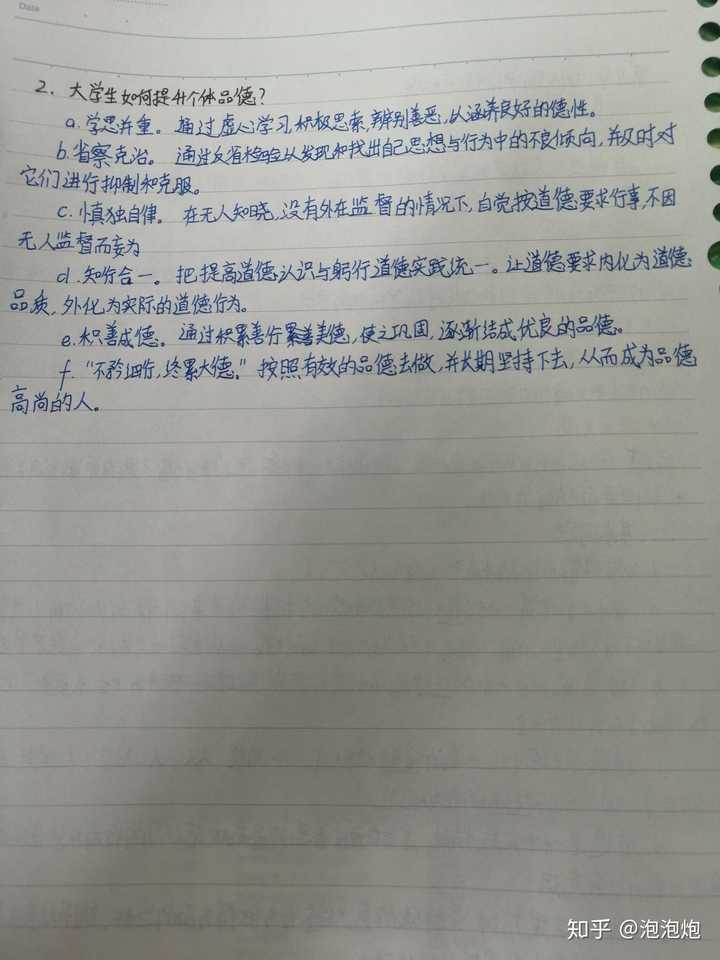 Date
2. 大学生如何提升个体品德?
a.学思并重。通过虚心学习,积极思索,辨别善恶,以涵养良好的德性。
b.省察克治。通过反省检验以发现和找出自己思想与行为中的不良倾向,并及时对
它们进行抑制和克服。
c.慎独自律。在无人知晓,没有外在监督的情况下,自觉按道德要求行事,不因
无人监督而妄为
d.知行合一。把提高道德认识与躬行道德实践统一。让道德要求内化为道德
品质,外化为实际的道德行为。
e.积善成德。通过积累善行累善美德,使之巩固,逐渐结成优良的品德。
f.“不矜细行,终累大德。”按照有效的品德去做,并长期坚持下去,从而成为品德
高尚的人。
知乎 @泡泡炮